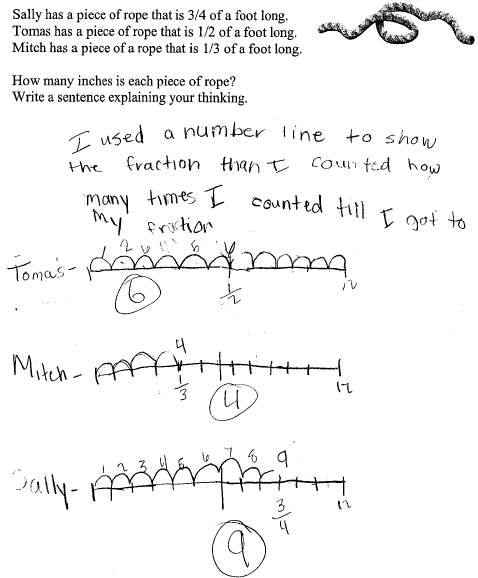 Sally has a piece of rope that is 3/4 of a foot long.
Tomas has a piece of rope that is 1/2 of a foot long.
Mitch has a piece of a rope that is 1/3 of a foot long.
How many inches is each piece of rope?
Write a sentence explaining your thinking.
I used a number line to show
the fraction than I counted how
many times I counted till I got to
my fraction
1 2 5
Tomas-
12
6
1/2
4
Mitch -
12
1/3
4
1 2 3 4 5 6 7 8 9
Sally-
12
3/4
9